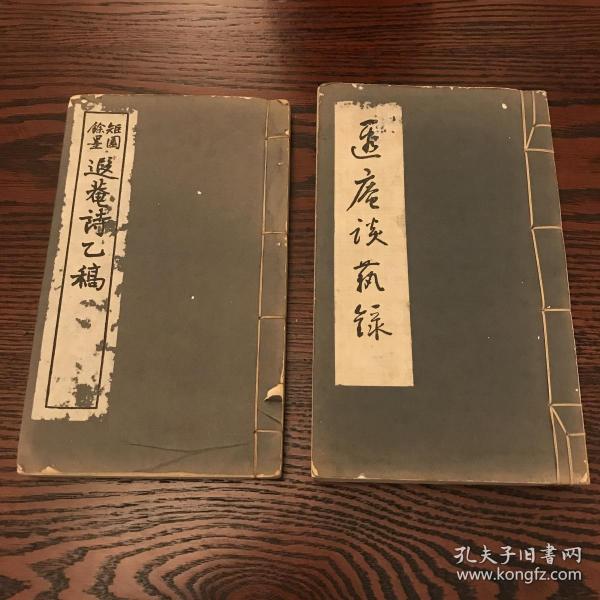 矩園
餘墨
遐菴詩乙稿
遐庵談藝錄
孔夫子旧書网
www.kongfz.com